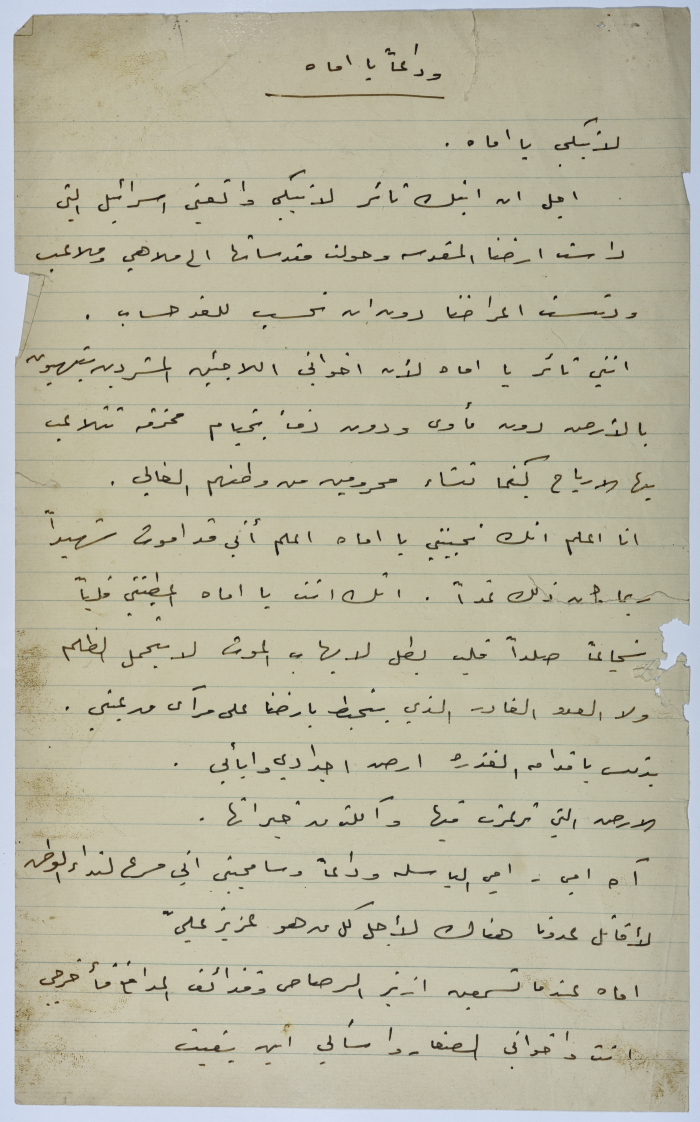 وداعاً يا اماه
لا تبكي يا اماه .
اجل ان ابنك ثائر لا تبكي والعني اسرائيل التي
داست ارضنا المقدسه وحولت مقدساتها الى ملاهي وملاعب
ودنست اعراضنا دون ان تحسب للغد حساب .
انني ثائر يا اماه لأن اخواني اللاجئين المشردين يتيهون
بالأرض دون مأوى ودون دفء بخيام ممزقه تتلاعب
بها الارياح كيفما تشاء محرومين من وطنهم الغالي .
انا اعلم انك تحبيني يا اماه اعلم أني قد اموت شهيداً
ربما كان ذلك غداً . انك انت يا اماه اعطيتني قلباً
شجاعاً صلداً قلب بطل لا يهاب الموت لا يتحمل الظلم
ولا العدو الغادر الذي يتخبط بارضنا على مرآى من عيني .
يدنس باقدامه القذره ارض اجدادي وابائي .
الارض التي ترعرت فيها وأكلت من خيراتها .
آه امي . امي الباسله وداعاً وسامحيني اني مسرع لنداء الوطن
لأقاتل عدونا هناك لأجل كل من هو عزيز عليّ
اماه عندما تسمعين ازيز الرصاص وقذائف المدافع فأخرجي
انت واخواني الصغار واسألي اين بقيت